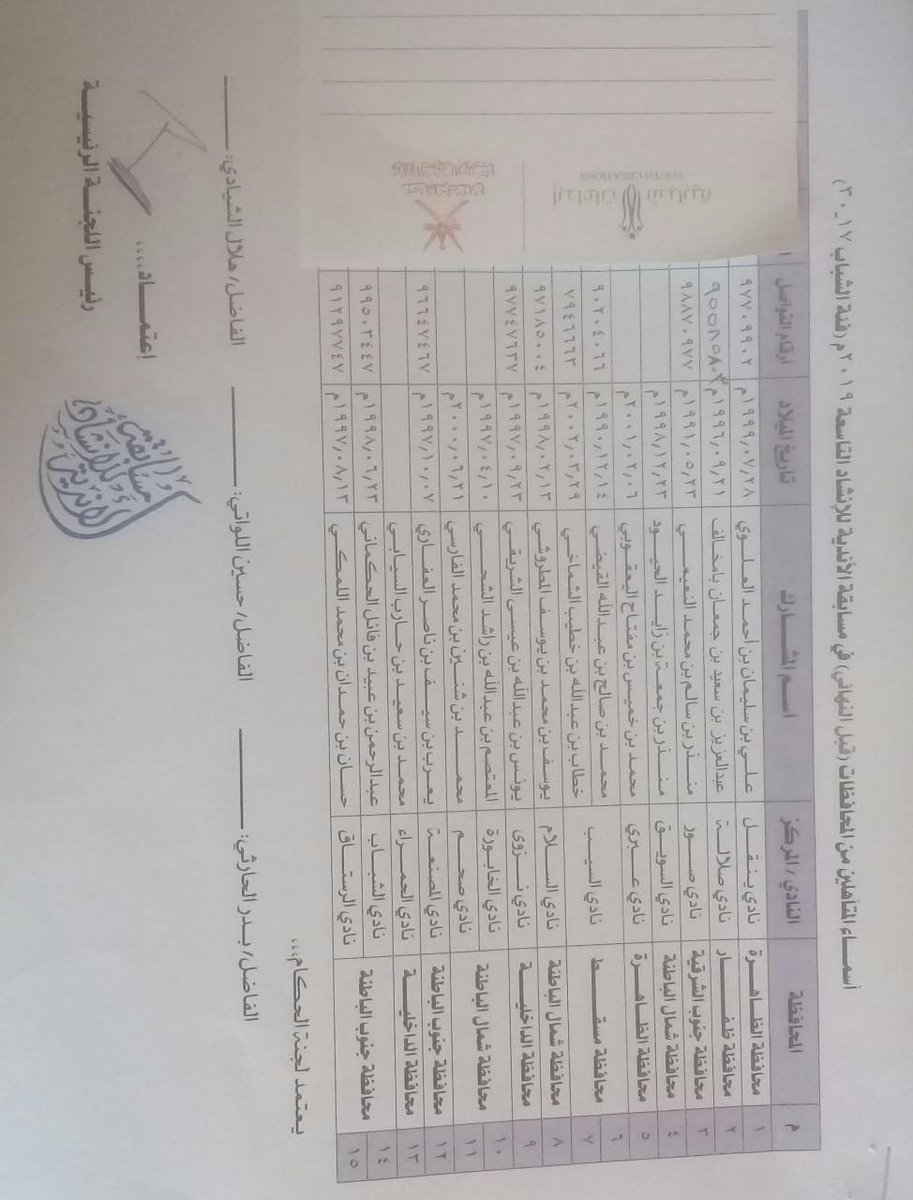 أسماء المتأهلين من المحافظات (قبل النهائي) في مسابقة الأندية للإنشاد التاسعة ٢٠١٩م (فئة الشباب ١٧-٣٠)
م المحافظة النادي / المركز اسم المشارك تاريخ الميلاد ارقام التواصل
١ محافظة الظاهرة نادي ينقل علي بن سليمان بن أحمد العلوي ١٩٩٩/٠٧/٢٨م ٩٧٧٠٩٩٠٢
٢ محافظة ظفار نادي صلالة عبدالعزيز بن سعيد بن جمعان بامخالف ١٩٩٦/٠٩/٢١م
٣ محافظة جنوب الشرقية نادي صور منذر بن سالم بن محمد النعيمي ١٩٩١/٠٥/٢٣م ٩٨٨٧٠٩٧٧
٤ محافظة شمال الباطنة نادي السويق منذر بن جمعة بن زايد الحيود ١٩٩٨/١٢/٢٣م
٥ محافظة الظاهرة نادي عبري محمد بن خميس بن مفتاح اليعقوبي ٢٠٠١/٠٢/٠٦م
٦ محافظة مسقط نادي السيب محمد بن صالح بن عبدالله القيضي ١٩٩٠/١٢/١٤م ٩٠٢٠٤٠٦٦
٧ خطاب بن عبدالله بن خطيب الشماخي ٢٠٠٢/٠٣/٢٩م ٧٩٤٦٦٦٣
٨ محافظة شمال الباطنة نادي السلام يوسف بن محمد بن يوسف المطروشي ١٩٩٨/٠٢/١٣م ٩٧١٨٥٠٠٤
٩ محافظة الداخلية نادي نزوى يونس بن عبدالله بن عيسى الشريقي ١٩٩٧/٠٩/٢٣م ٩٧٧٤٧٦٣٧
١٠ محافظة شمال الباطنة نادي الخابورة المعتصم بن عبدالله بن راشد الشحي ١٩٩٧/٠٤/١٠م
١١ نادي صحم محمد بن شنين بن محمد الفارسي ٢٠٠٠/٠٦/٢١م
١٢ محافظة جنوب الباطنة نادي المصنعة يعرب بن سيف بن ناصر الغفاري ١٩٩٧/١٠/٠٧م ٩٦٦٤٧٤٦٧
١٣ محافظة الداخلية نادي الحمراء محمد بن سعيد بن حارب السيابي
١٤ محافظة جنوب الباطنة نادي الشباب عبدالرحمن بن عبيد بن فائل الحكماني ١٩٩٨/٠٦/٢٣م ٩٩٥٠٣٤٤٧
١٥ نادي الرستاق حسان بن حمدان بن محمد اللمكي ١٩٩٧/٠٨/١٣م ٩١٢٩٧٧٤٧
إبداعات شبابية
YOUTH CREATIONS
يعتمد لجنة الحكام،،،
الفاضل/ بدر الحارثي: الفاضل/ حسين اللواتي: الفاضل/ هلال الشيادي:
إعتماد،،،
رئيس اللجنة الرئيسية
مسابقة الأندية للإنشاد